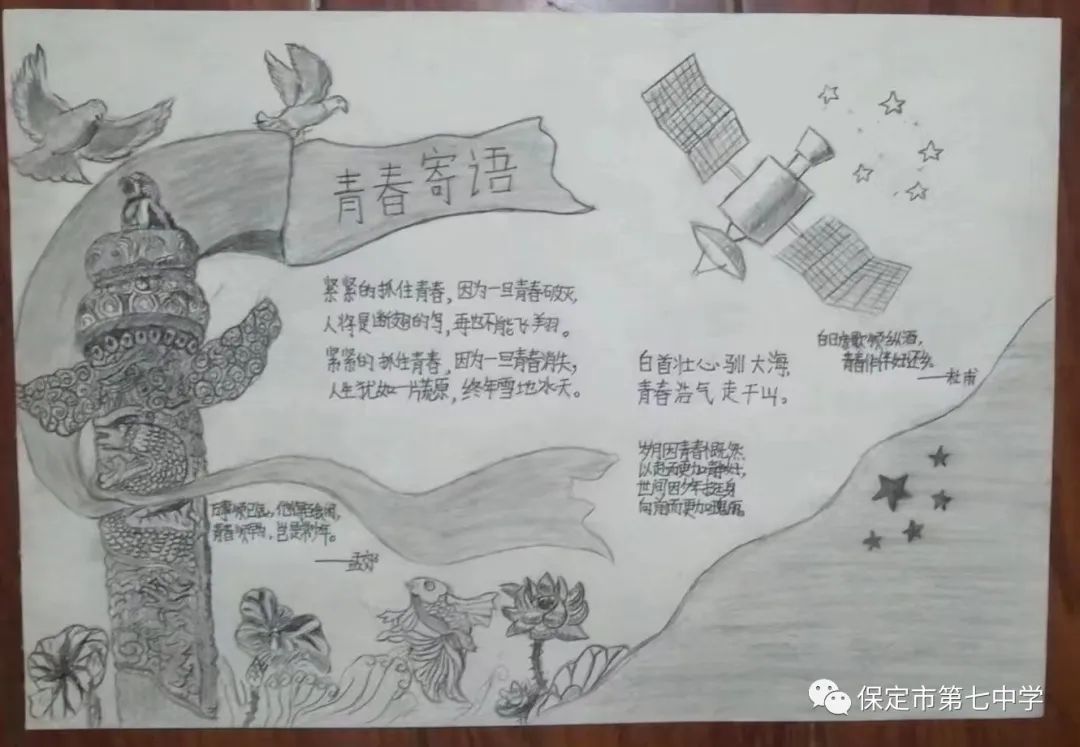 青春寄语
紧紧的抓住青春，因为一旦青春破灭，
人将是断翅的鸟，再也不能飞翔。
紧紧的抓住青春，因为一旦青春消失，
人生犹如一片荒原，终年雪地冰天。
白首壮心驯大海
青春浩气走千山。
白日放歌须纵酒，
青春作伴好还乡。
——杜甫
岁月因青春慨然
以赴而更加静好，
世间因少年挺身
向前而更加瑰丽。
青春须早为，岂是常少年。
——孟郊
保定市第七中学